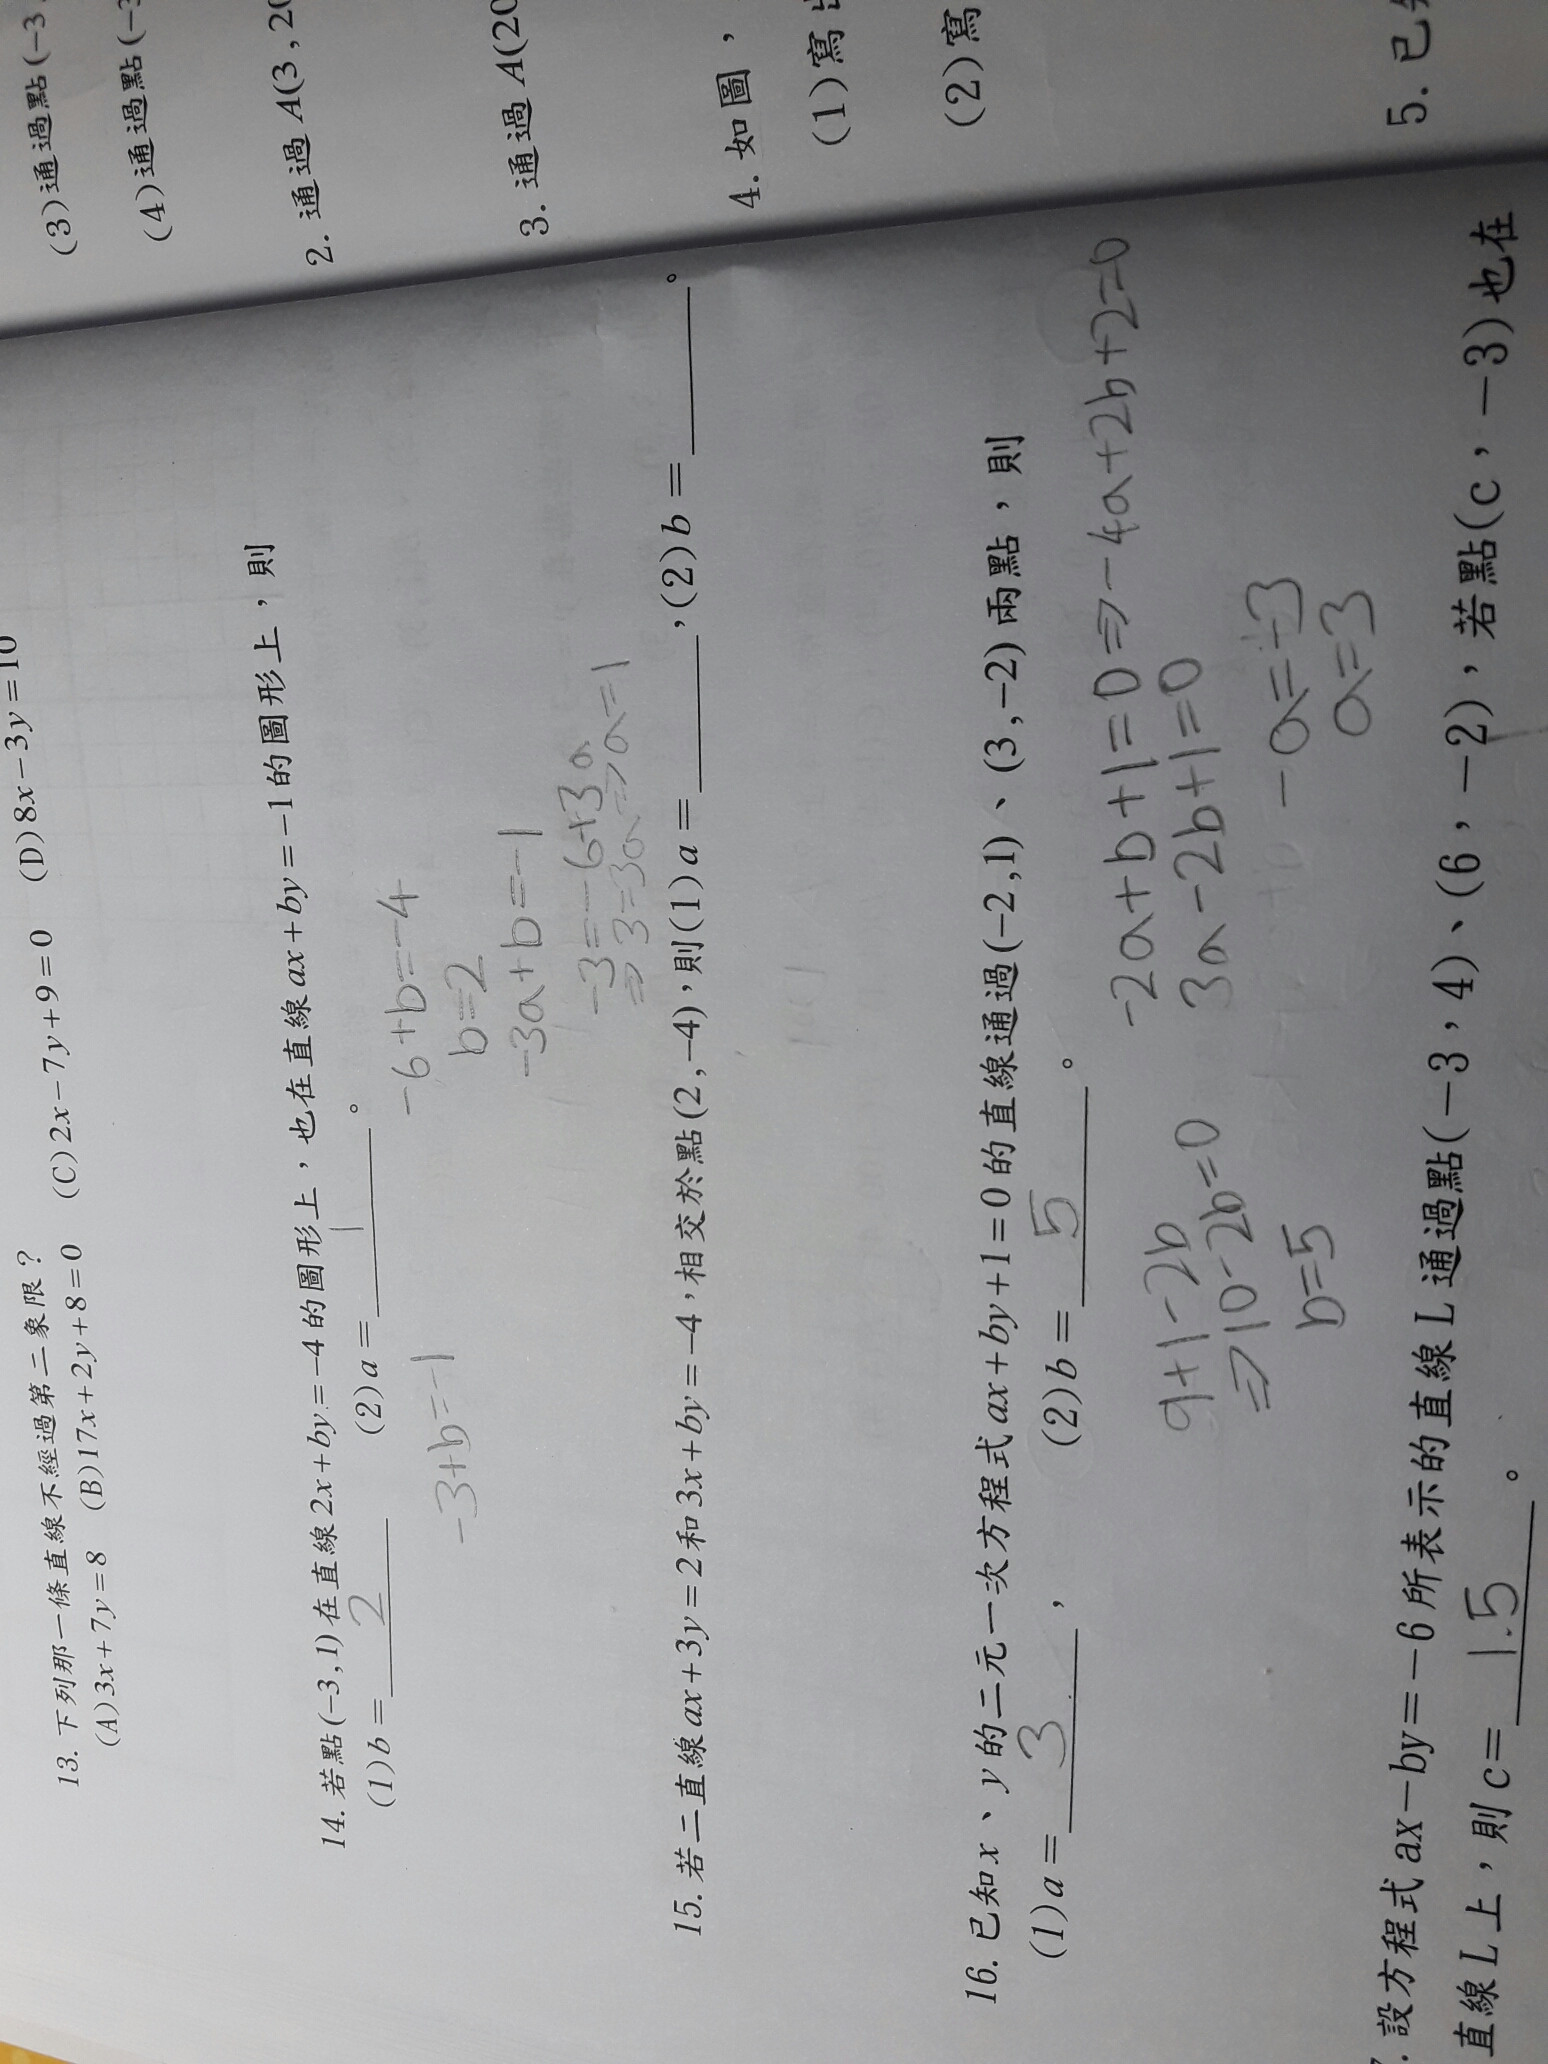 13. 下列那一條直線不經過第二象限？
(A)3x+7y=8 (B)17x+2y+8=0 (C)2x-7y+9=0 (D)8x-3y=10
14. 若點(-3,1)在直線2x+by=-4的圖形上，也在直線ax+by=-1的圖形上，則
(1)b= 2 (2)a= 1 。
-3+b=-1
-6+b=-4
b=2
-3a+b=-1
-3=-6+3a
⇒3=3a⇒a=1
15. 若二直線ax+3y=2和3x+by=-4，相交於點(2,-4)，則(1)a=______，(2)b=______。
16. 已知x、y的二元一次方程式ax+by+1=0的直線通過(-2,1)、(3,-2)兩點，則
(1)a= 3 ， (2)b= 5 。
-2a+b+1=0⇒-4a+2b+2=0
3a-2b+1=0
-a=-3
a=3
9+1-2b
⇒10-2b=0
b=5
. 設方程式ax-by=-6所表示的直線L通過點(-3，4)、(6，-2)，若點(c，-3)也在
直線L上，則c= 1.5 。
(3)通過點(-3
(4)通過點(-3
2. 通過A(3,20
3. 通過A(20
4. 如圖，
(1)寫出
(2)寫
5. 已